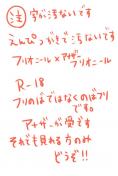 注 字が汚ないです
えんぴつがきで汚ないです
フリオニール×アナザー
フリオニール
R-18
フリのばではなくのばフリ
です。
アナザーが歪です
それでも見れる方のみ
どうぞ!!